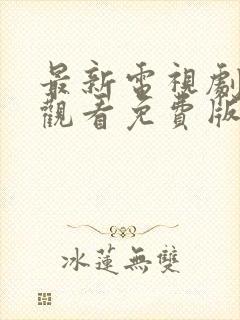 最新電視劇
觀看免費版
冰蓮無雙